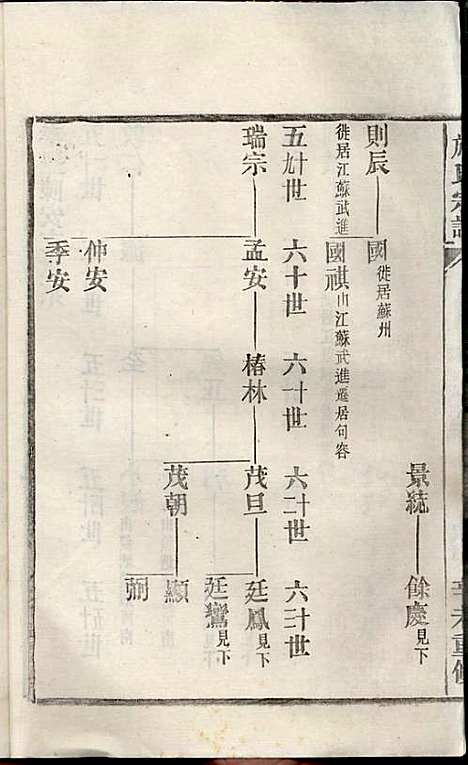 景統 餘慶見下
則辰 國 徙居蘇州
徙居江蘇武進 國祺 由江蘇武進遷居句容
五十九世 六十世 六十一世 六十二世 六十三世
瑞宗 孟安 椿林 茂旦 廷鳳見下
廷鸞見下
茂朝 顯
嗣
仲安
季安